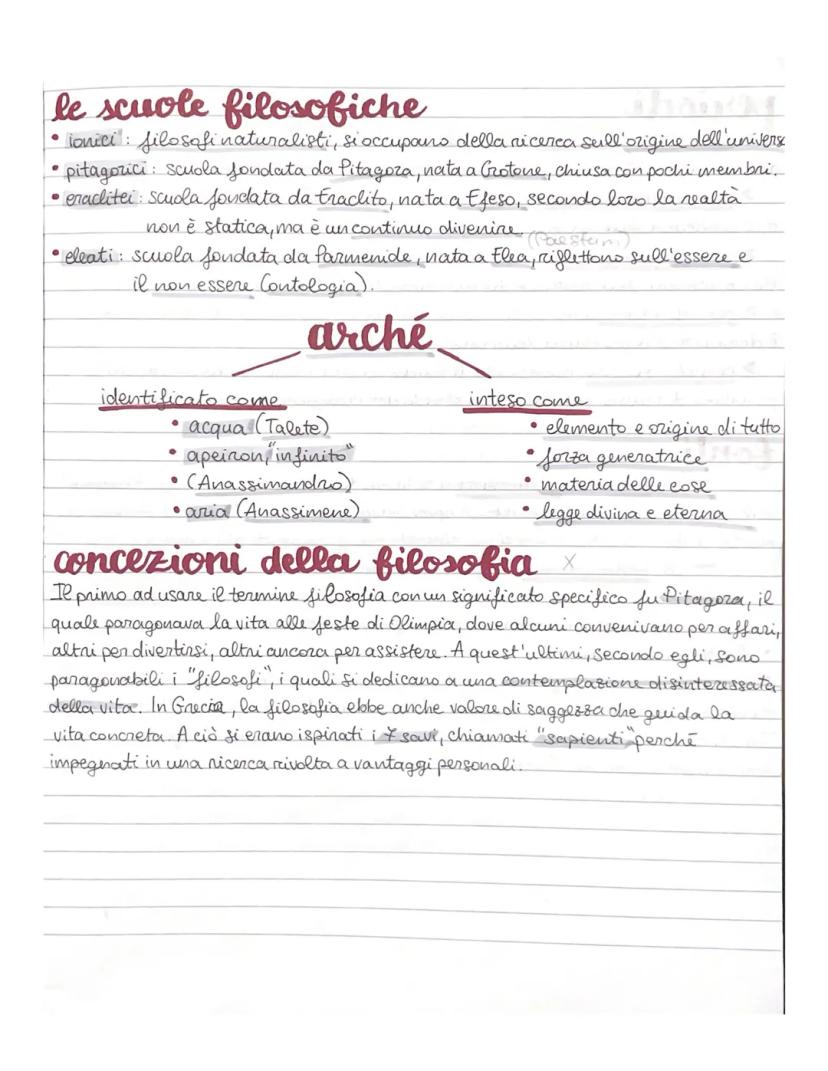 le scuole filosofiche
• ionici: filosofi naturalisti, si occupano della ricerca sull'origine dell'univers
• pitagorici: scuola fondata da Pitagora, nata a Crotone, chiusa con pochi membri.
• eraclitei: scuola fondata da Eraclito, nata a Efeso, secondo loro la realtà
non è statica, ma è un continuo divenire.
(Paestum)
• eleati: scuola fondata da Parmenide, nata a Elea, riflettono sull'essere e
il non essere (ontologia).
arché
identificato come
• acqua (Talete)
• apeiron, "infinito"
• (Anassimandro)
• aria (Anassimene)
inteso come
• elemento e origine di tutto
• forza generatrice
• materia delle cose
• legge divina e eterna
concezioni della filosofia x
Il primo ad usare il termine filosofia con un significato specifico fu Pitagora, il
quale paragonava la vita alle feste di Olimpia, dove alcuni convenivano per affari,
altri per divertirsi, altri ancora per assistere. A quest'ultimi, secondo egli, sono
paragonabili i "filosofi", i quali si dedicano a una contemplazione disinteressata
della vita. In Grecia, la filosofia ebbe anche valore di saggezza che guida la
vita concreta. A ciò si erano ispirati i 7 savi, chiamati "sapienti" perché
impegnati in una ricerca rivolta a vantaggi personali.